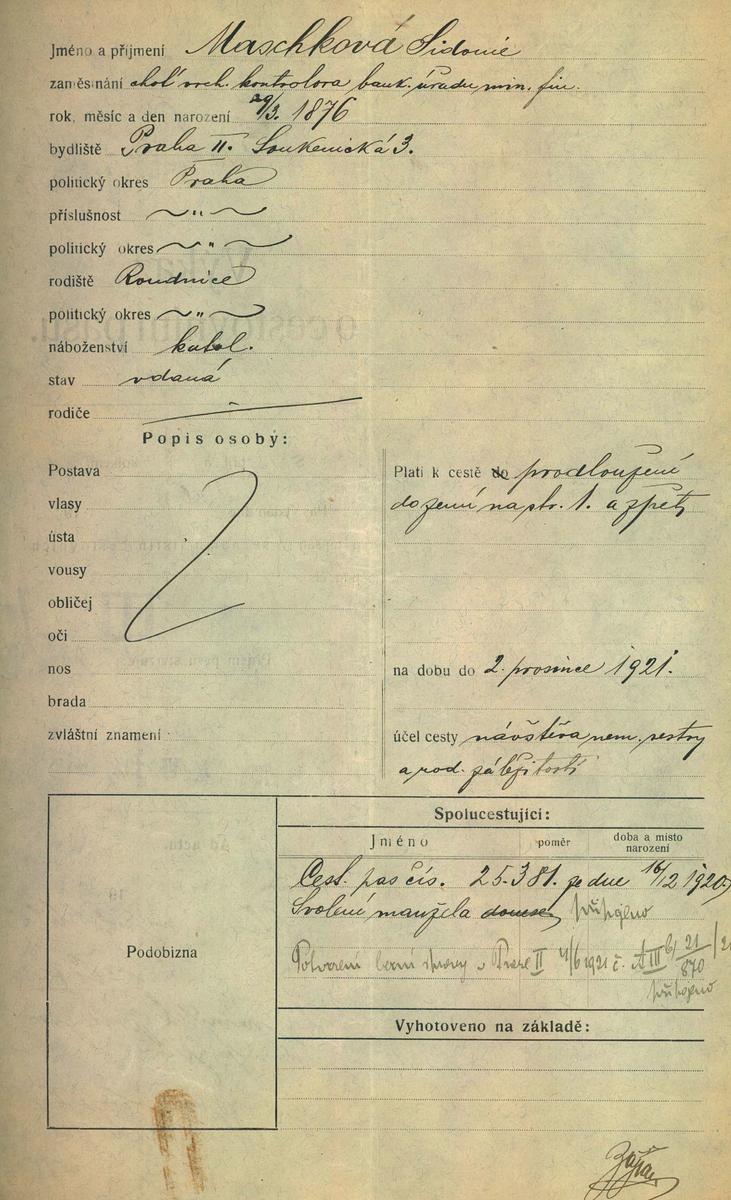 Jméno a příjmení Maschková Sidonie
zaměstnání choť vrch. kontrolora bank. úřadu min. fin.
rok, měsíc a den narození 29/3. 1876
bydliště Praha II. Soukenická 3.
politický okres Praha
příslušnost — " —
politický okres — " —
rodiště Roudnice
politický okres — " —
náboženství katol.
stav vdaná
rodiče —
Popis osoby:
Postava
vlasy
ústa
vousy
obličej
oči
nos
brada
zvláštní znamení
Platí k cestě do prodloužení
do zemí na str. 1. a zpět
na dobu do 2. prosince 1921.
účel cesty návštěva nem. sestry
a rod. záležitosti
Podobizna
Spolucestující:
Jméno poměr doba a místo narození
Cest. pas čís. 25.381. ze dne 16/2 1920
Svolení manžela donese připojeno
Potvrzení berní správy v Praze II 4/6 1921 č. A III 6/21 870 /21
připojeno
Vyhotoveno na základě: